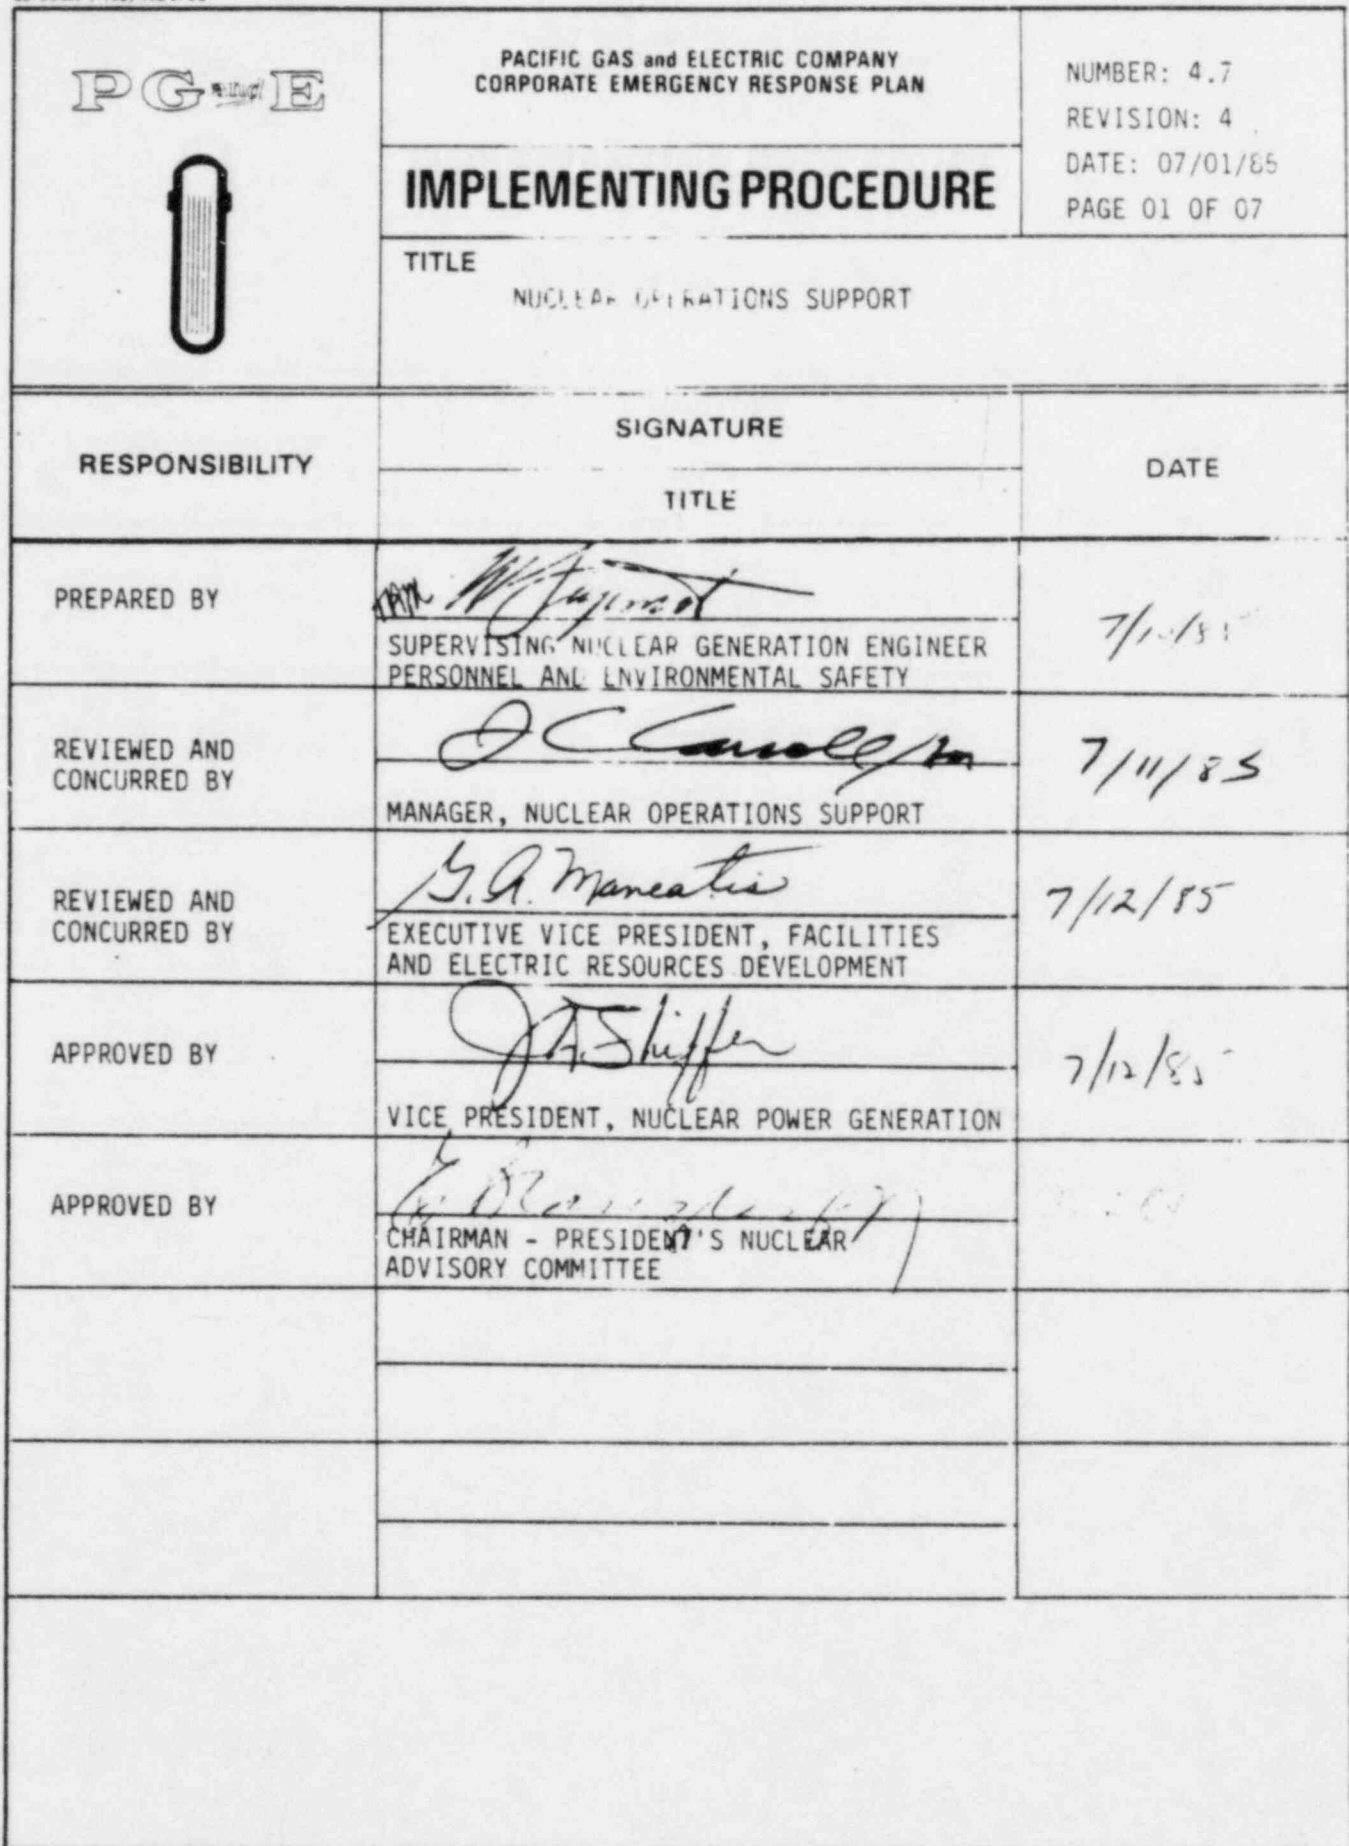 PG and E
PACIFIC GAS and ELECTRIC COMPANY
CORPORATE EMERGENCY RESPONSE PLAN
IMPLEMENTING PROCEDURE
NUMBER: 4.7
REVISION: 4
DATE: 07/01/85
PAGE 01 OF 07
TITLE
NUCLEAR OPERATIONS SUPPORT
RESPONSIBILITY
SIGNATURE
TITLE
DATE
PREPARED BY
SUPERVISING NUCLEAR GENERATION ENGINEER
PERSONNEL AND ENVIRONMENTAL SAFETY
REVIEWED AND
CONCURRED BY
J C Carroll
MANAGER, NUCLEAR OPERATIONS SUPPORT
7/11/85
REVIEWED AND
CONCURRED BY
G. A. Maneatis
EXECUTIVE VICE PRESIDENT, FACILITIES
AND ELECTRIC RESOURCES DEVELOPMENT
7/12/85
APPROVED BY
J. Shiffer
VICE PRESIDENT, NUCLEAR POWER GENERATION
7/12/85
APPROVED BY
CHAIRMAN - PRESIDENT'S NUCLEAR
ADVISORY COMMITTEE